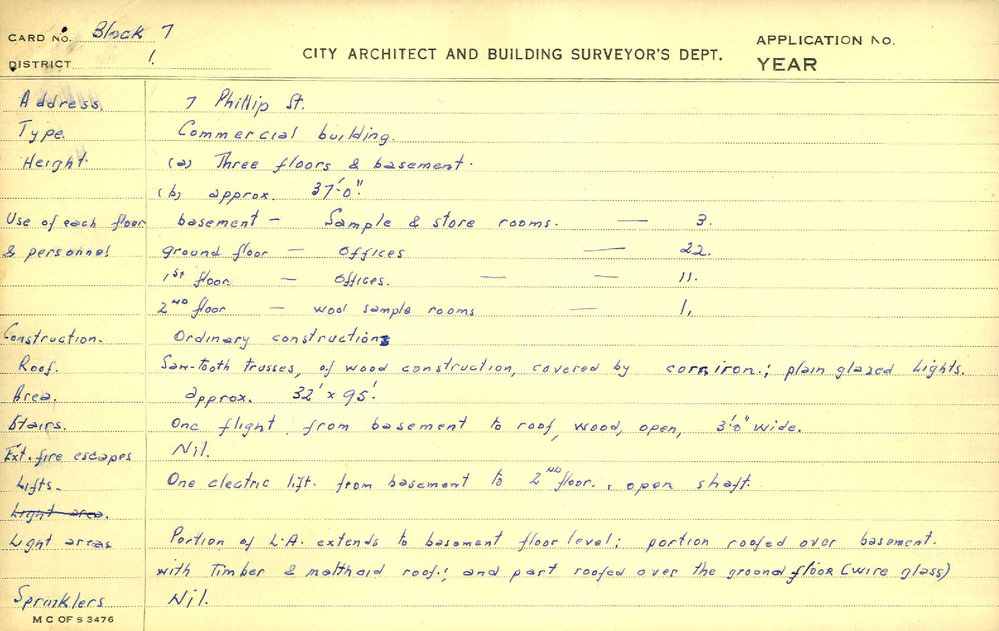 CARD No. Block 7
DISTRICT 1.
CITY ARCHITECT AND BUILDING SURVEYOR'S DEPT.
APPLICATION No.
YEAR
Address. 7 Phillip St.
Type. Commercial building.
Height. (a) Three floors & basement.
(b) approx. 37'-0".
Use of each floor basement — Sample & store rooms. — 3.
& personnel ground floor — Offices — 22.
1st floor — Offices. — — 11.
2ND floor — wool sample rooms — 1,
Construction. Ordinary construction
Roof. Saw-tooth trusses, of wood construction, covered by corr. iron.; plain glazed lights.
Area. approx. 32' x 95'.
Stairs. One flight from basement to roof, wood, open, 3'-0" wide.
Ext. fire escapes Nil.
Lifts. One electric lift. from basement to 2ND floor., open shaft.
Light area.
Light areas Portion of L.A. extends to basement floor level; portion roofed over basement.
with Timber & malthoid roof.; and part roofed over the ground floor (wire glass)
Sprinklers Nil.
M C OF S 3476